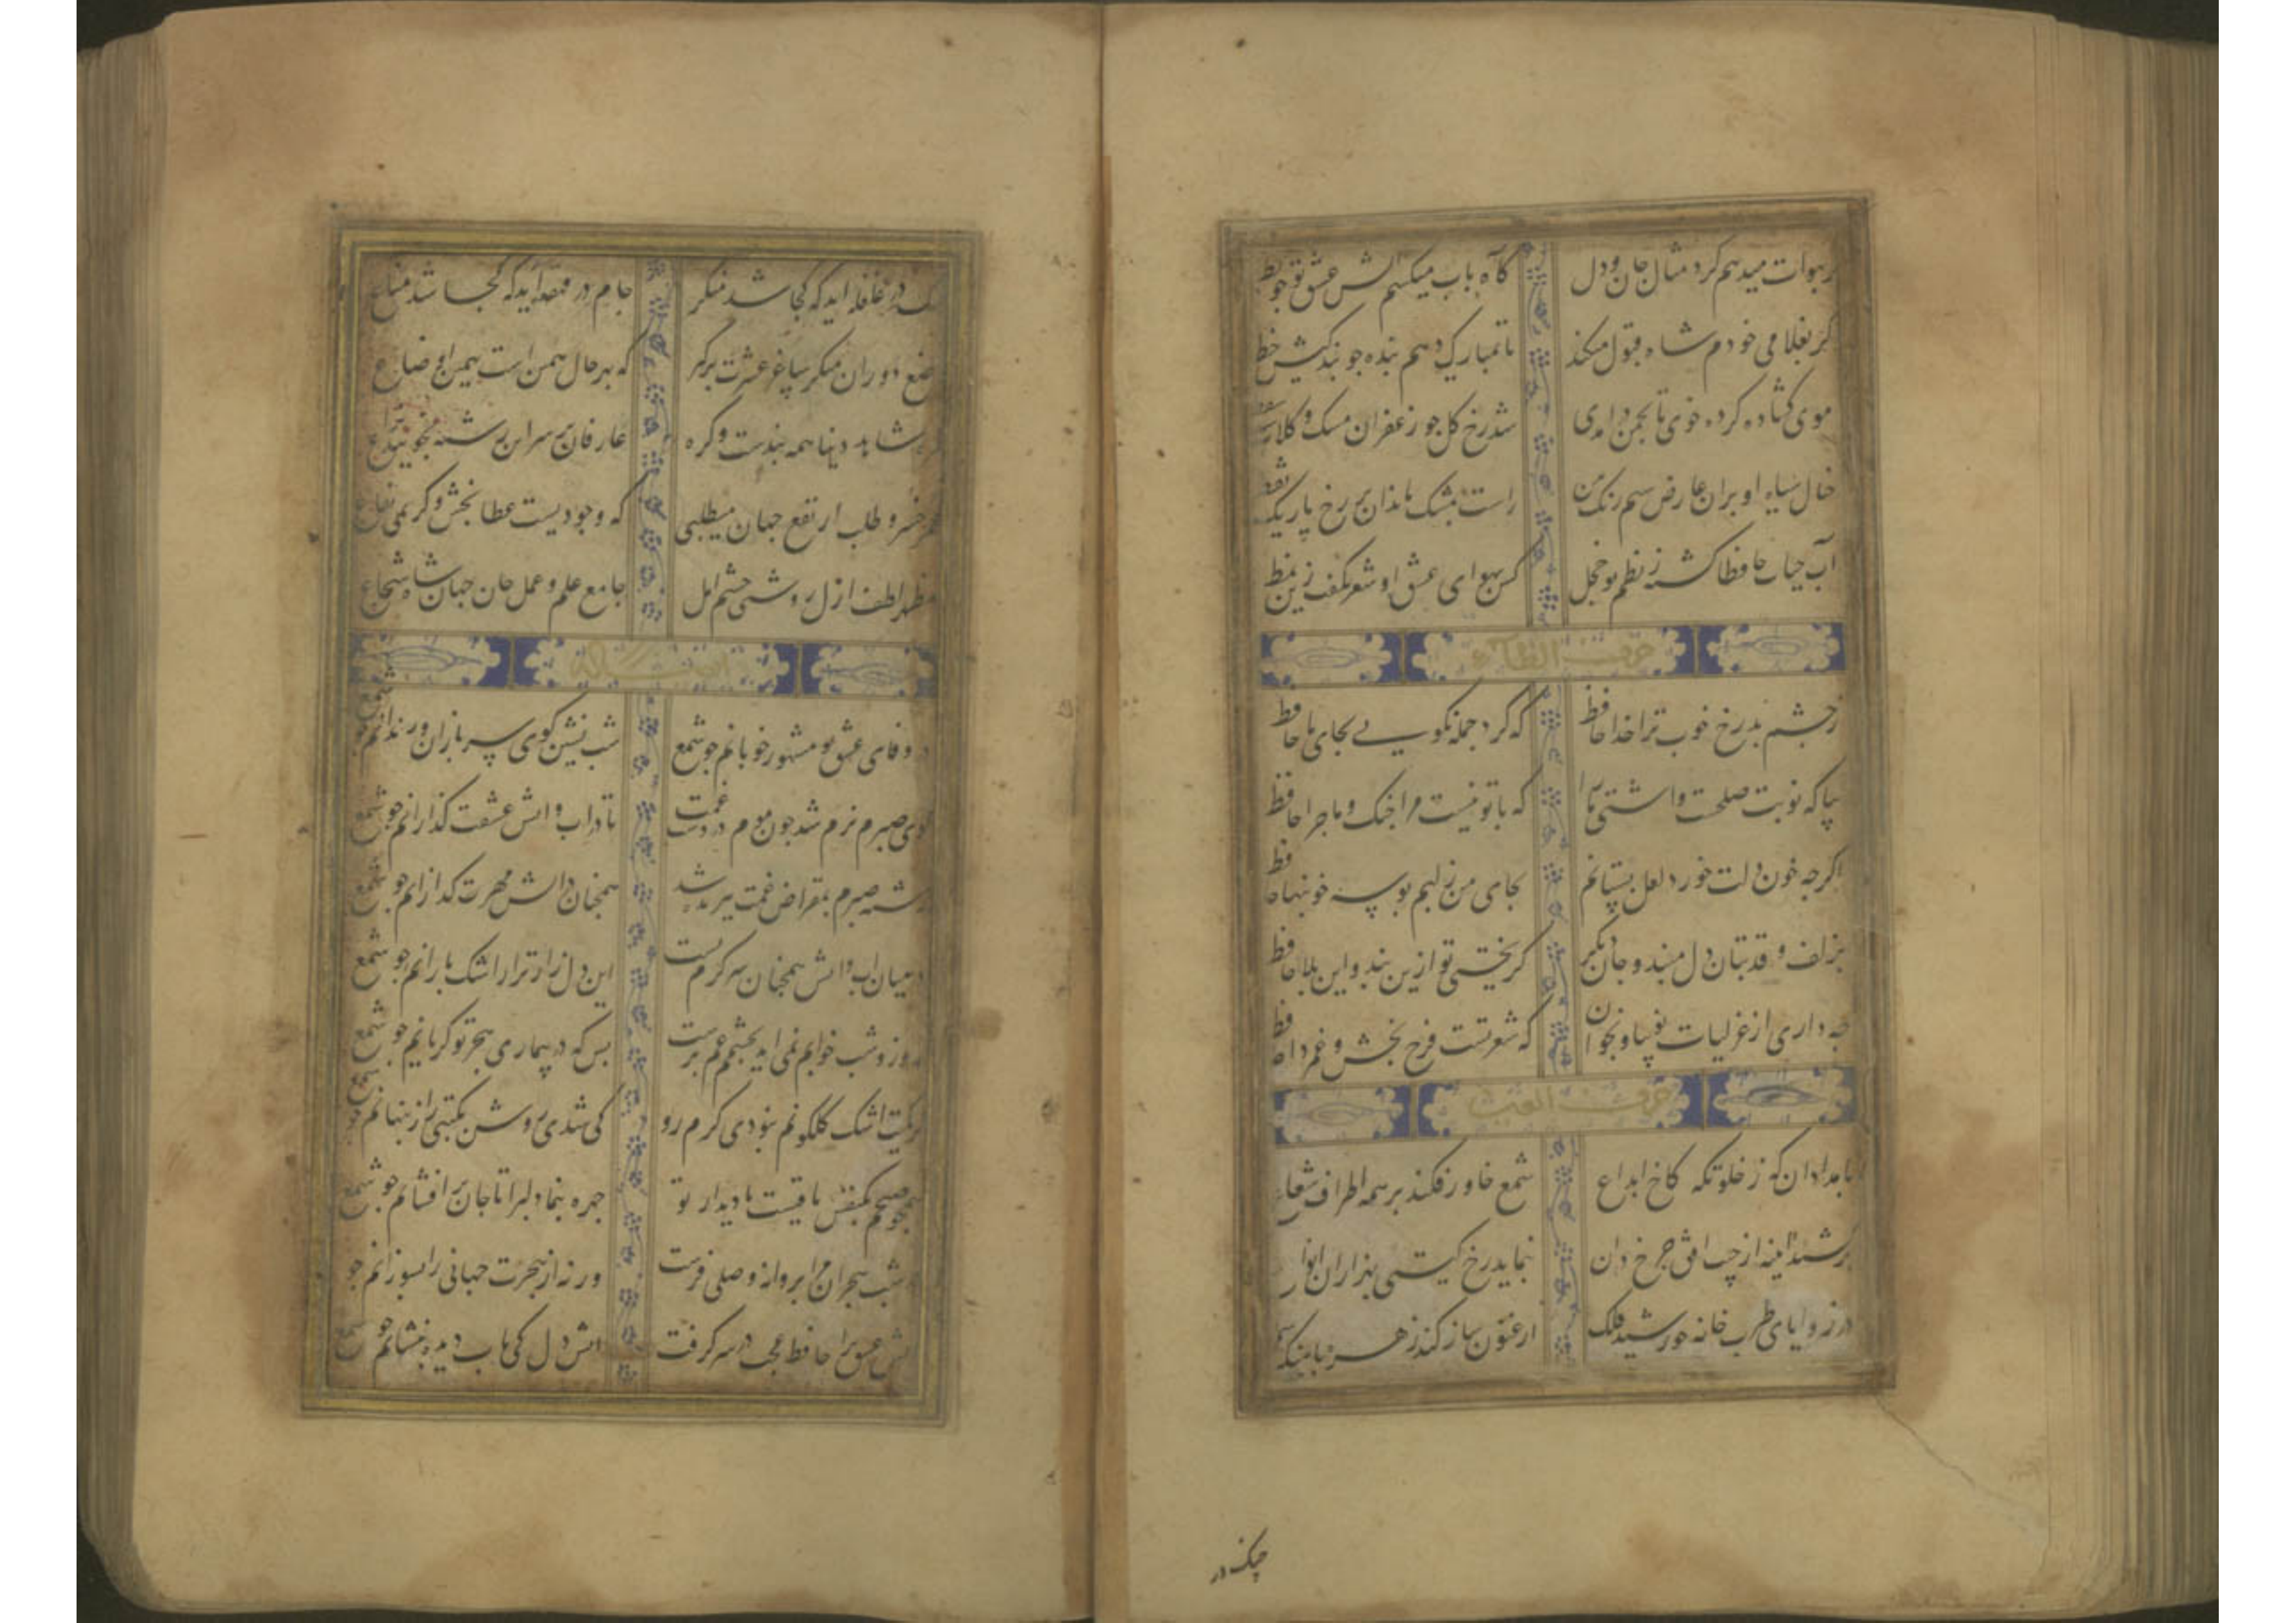 در هوات میدهم کرد مثال جان و دل
کاه باب میکشم اتش عشق تو جو بط
کر بغلامی خودم شاه قبول میکند
تا تمبارکی دهم بنده جو بندکیش خط
موی کشاده کرده خوی تا بجمن در امدی
شد رخ کل جو زعفران مشک و کلاب
خال سیاه او بران عارض سیم رنک بین
راست بمشک ماند ان بر رخ یار یک نقط
آب حیات حافظا کشته ز نظم تو خجل
کس بهوای عشق او شعر نکفت زین نمط
حرف الظاء
ز جشم بد رخ خوب ترا خدا حافظ
که کرد جمله نکویی بجای ما حافظ
بیا که نوبت صلحست و اشتی ما را
که با تو نیست مرا جنک و ماجرا حافظ
اکرجه خون دلت خورد لعل بستانم
بجای من ز لبم بوسه خونبها حافظ
بزلف و قد بتان دل مبند و جان دیکر
کریختی تو ازین بند و این بلا حافظ
جه داری از غزلیات نو بیا و بخوان
که شعر تست فرح بخش و غم زدا حافظ
حرف العین
بامدادان که ز خلوتکه کاخ ابداع
شمع خاور فکند بر همه اطراف شعاع
برکشد اینه از جیب افق جرخ و دران
بنماید رخ کیتی بهزاران انواع
در زوایای طرب خانه خورشید فلک
ارغنون ساز کند زهره باهنک
جنک در
جنک در غلغله اید که کجا شد منکر
جام در قهقهه اید که کجا شد مناع
وضع دوران بنکر ساغر عشرت برکیر
که بهر حال همین است بهین اوضاع
طره شاهد دنیا همه بندست و کره
عارفان بر سر این رشته نجویند نزاع
عمر خسرو طلب ار نفع جهان میطلبی
که وجودیست عطا بخش و کریمی نفاع
مظهر لطف ازل روشنی جشم امل
جامع علم و عمل جان جهان شاه شجاع
در وفای عشق تو مشهور خوبانم جو شمع
شب نشین کوی سربازان و رندانم جو شمع
کوه صبرم نرم شد جون موم در دست غمت
تا در اب و اتش عشقت کذارانم جو شمع
رشته صبرم بمقراض غمت ببریده شد
همجنان در اتش مهرت کدازانم جو شمع
در میان اب و اتش همجنان سرکرم تست
این دل زار نزار اشک بارانم جو شمع
روز و شب خوابم نمی اید بجشم غم پرست
بس که در بیماری هجر تو کریانم جو شمع
کر کمیت اشک کلکونم نبودی کرم رو
کی شدی روشن بکیتی راز بنهانم جو شمع
همجو صبحم یکنفس باقیست با دیدار تو
جهره بنما دلبرا تا جان بر افشانم جو شمع
در شب هجران مرا بروانه وصلی فرست
ورنه از هجرت جهانی را بسوزانم جو
اتش عشق را حافظ عجب در سر کرفت
اتش دل کی باب دیده بنشانم جو شمع